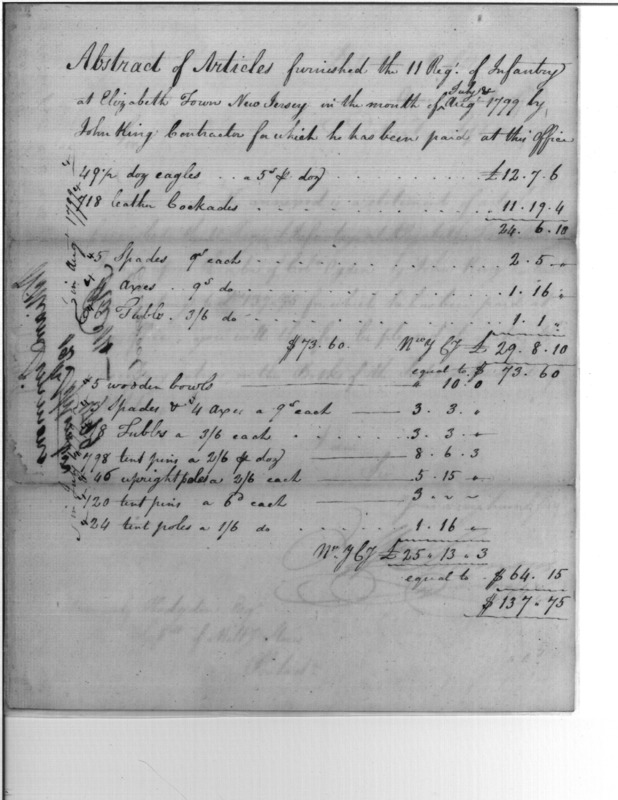 Abstract of Articles furnished the 11 Regt. of Infantry
at Elizabeth Town New Jersey in the month of July & Augt 1799 by
John King Contractor for which he has been paid at this Office
49½ doz eagles . . a 5s doz . . . £12. 7. 6
718 leather Cockades . . . . . . . . 11. 19. 4
24. 6. 10
5 Spades 9s each . . . . . . . . 2. 5 "
4 axes . . 9s do . . . . . . . . 1. 16 "
Tubbs . 3/6 do . . . . . . . . 1. 1 "
$73.60. £ 29. 8. 10
equal to $ 73. 60
5 wooden bowls " 10. 0
Spades & 4 axes a 9s each 3. 3. "
18 Tubbs a 3/6 each 3. 3. "
798 tent pins a 2/6 doz 8. 6. 3
46 upright poles a 2/6 each 5. 15 "
120 tent pins a 6d each 3. " "
24 tent poles a 1/6 do . . . . . 1. 16 "
£25. 13. 3
equal to . $64. 15
$137. 75
in Augt 1799